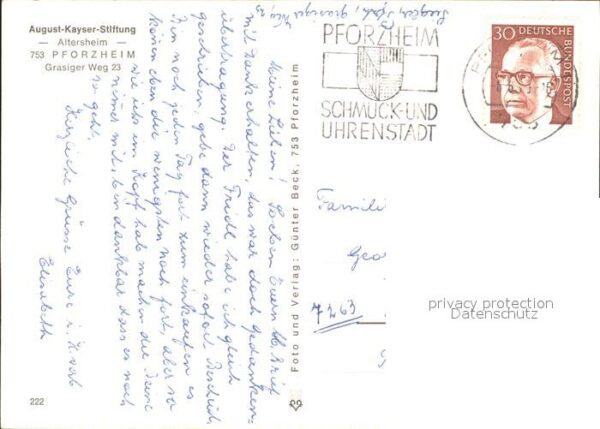 August-Kayser-Stiftung
— Altersheim —
753 PFORZHEIM
Grasiger Weg 23
Meine Lieben! Soeben Euern Brief
mit dank erhalten, das war doch gedanken-
übertragung. Der Friedl habe ich gleich
geschrieben, gebe dann wieder sofort Bescheid
Bin noch jeden Tag fort zum einkaufen es
können eben die wenigsten noch fort, aber so
wie ich im Kopf hab machen die Beine
nimmer mit, bin dankbar dass es noch
so geht.
Herzliche Grüsse Eure
Elisabeth
222
Foto und Verlag: Günter Beck, 753 Pforzheim
PFORZHEIM
SCHMUCK-UND
UHRENSTADT
30 DEUTSCHE
BUNDESPOST
Famili
Geo
7263
privacy protection
Datenschutz